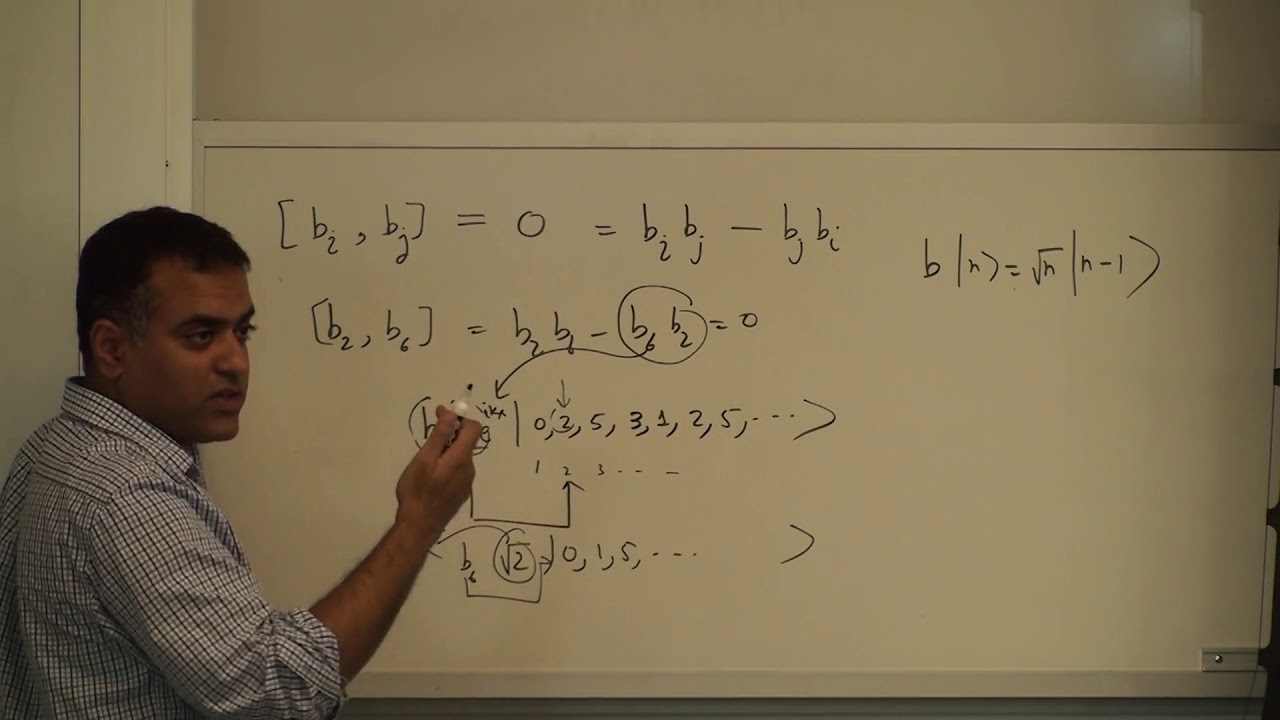 [b_i, b_j] = 0 = b_i b_j - b_j b_i
b|n⟩ = √n |n-1⟩
[b_2, b_6] = b_2 b_6 - b_6 b_2 = 0
| 0, 2, 5, 3, 1, 2, 5, ... ⟩
1 2 3 ...
b_6 √2 | 0, 1, 5, ... ⟩